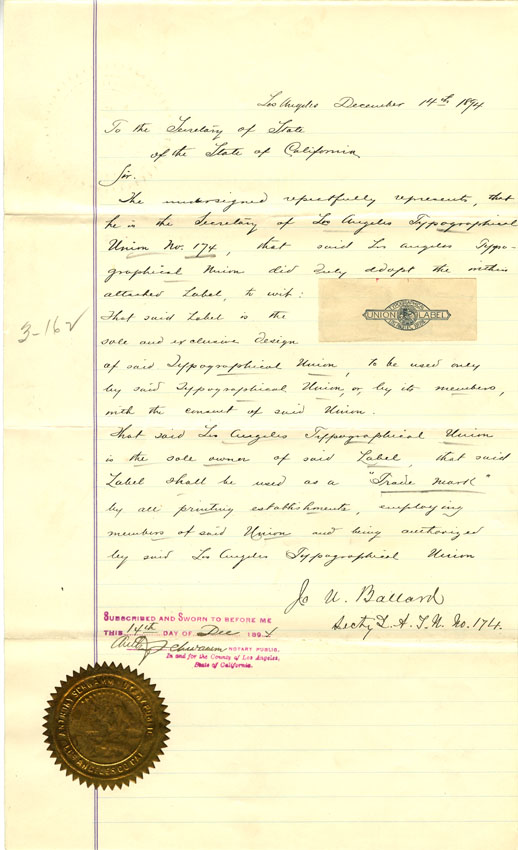 Los Angeles December 14th 1894
To the Secretary of State
of the State of California
Sir.
The undersigned respectfully represents, that
he is the Secretary of Los Angeles Typographical
Union No. 174, that said Los Angeles Typo-
graphical Union did duly adopt the within
attached Label, to wit:
TYPOGRAPHICAL
UNION LABEL
That said Label is the
sole and exclusive design
of said Typographical Union, to be used only
by said Typographical Union, or by its members,
with the consent of said Union.
That said Los Angeles Typographical Union
is the sole owner of said Label, that said
Label shall be used as a "Trade mark"
by all printing establishments, employing
members of said Union and being authorized
by said Los Angeles Typographical Union
3-162
J. U. Ballard
Secty L. A. T. U. No. 174.
SUBSCRIBED AND SWORN TO BEFORE ME
THIS 14th DAY OF Dec 1894
Schwamm NOTARY PUBLIC.
In and for the County of Los Angeles,
State of California.
NOTARY PUBLIC
LOS ANGELES CO. CAL.